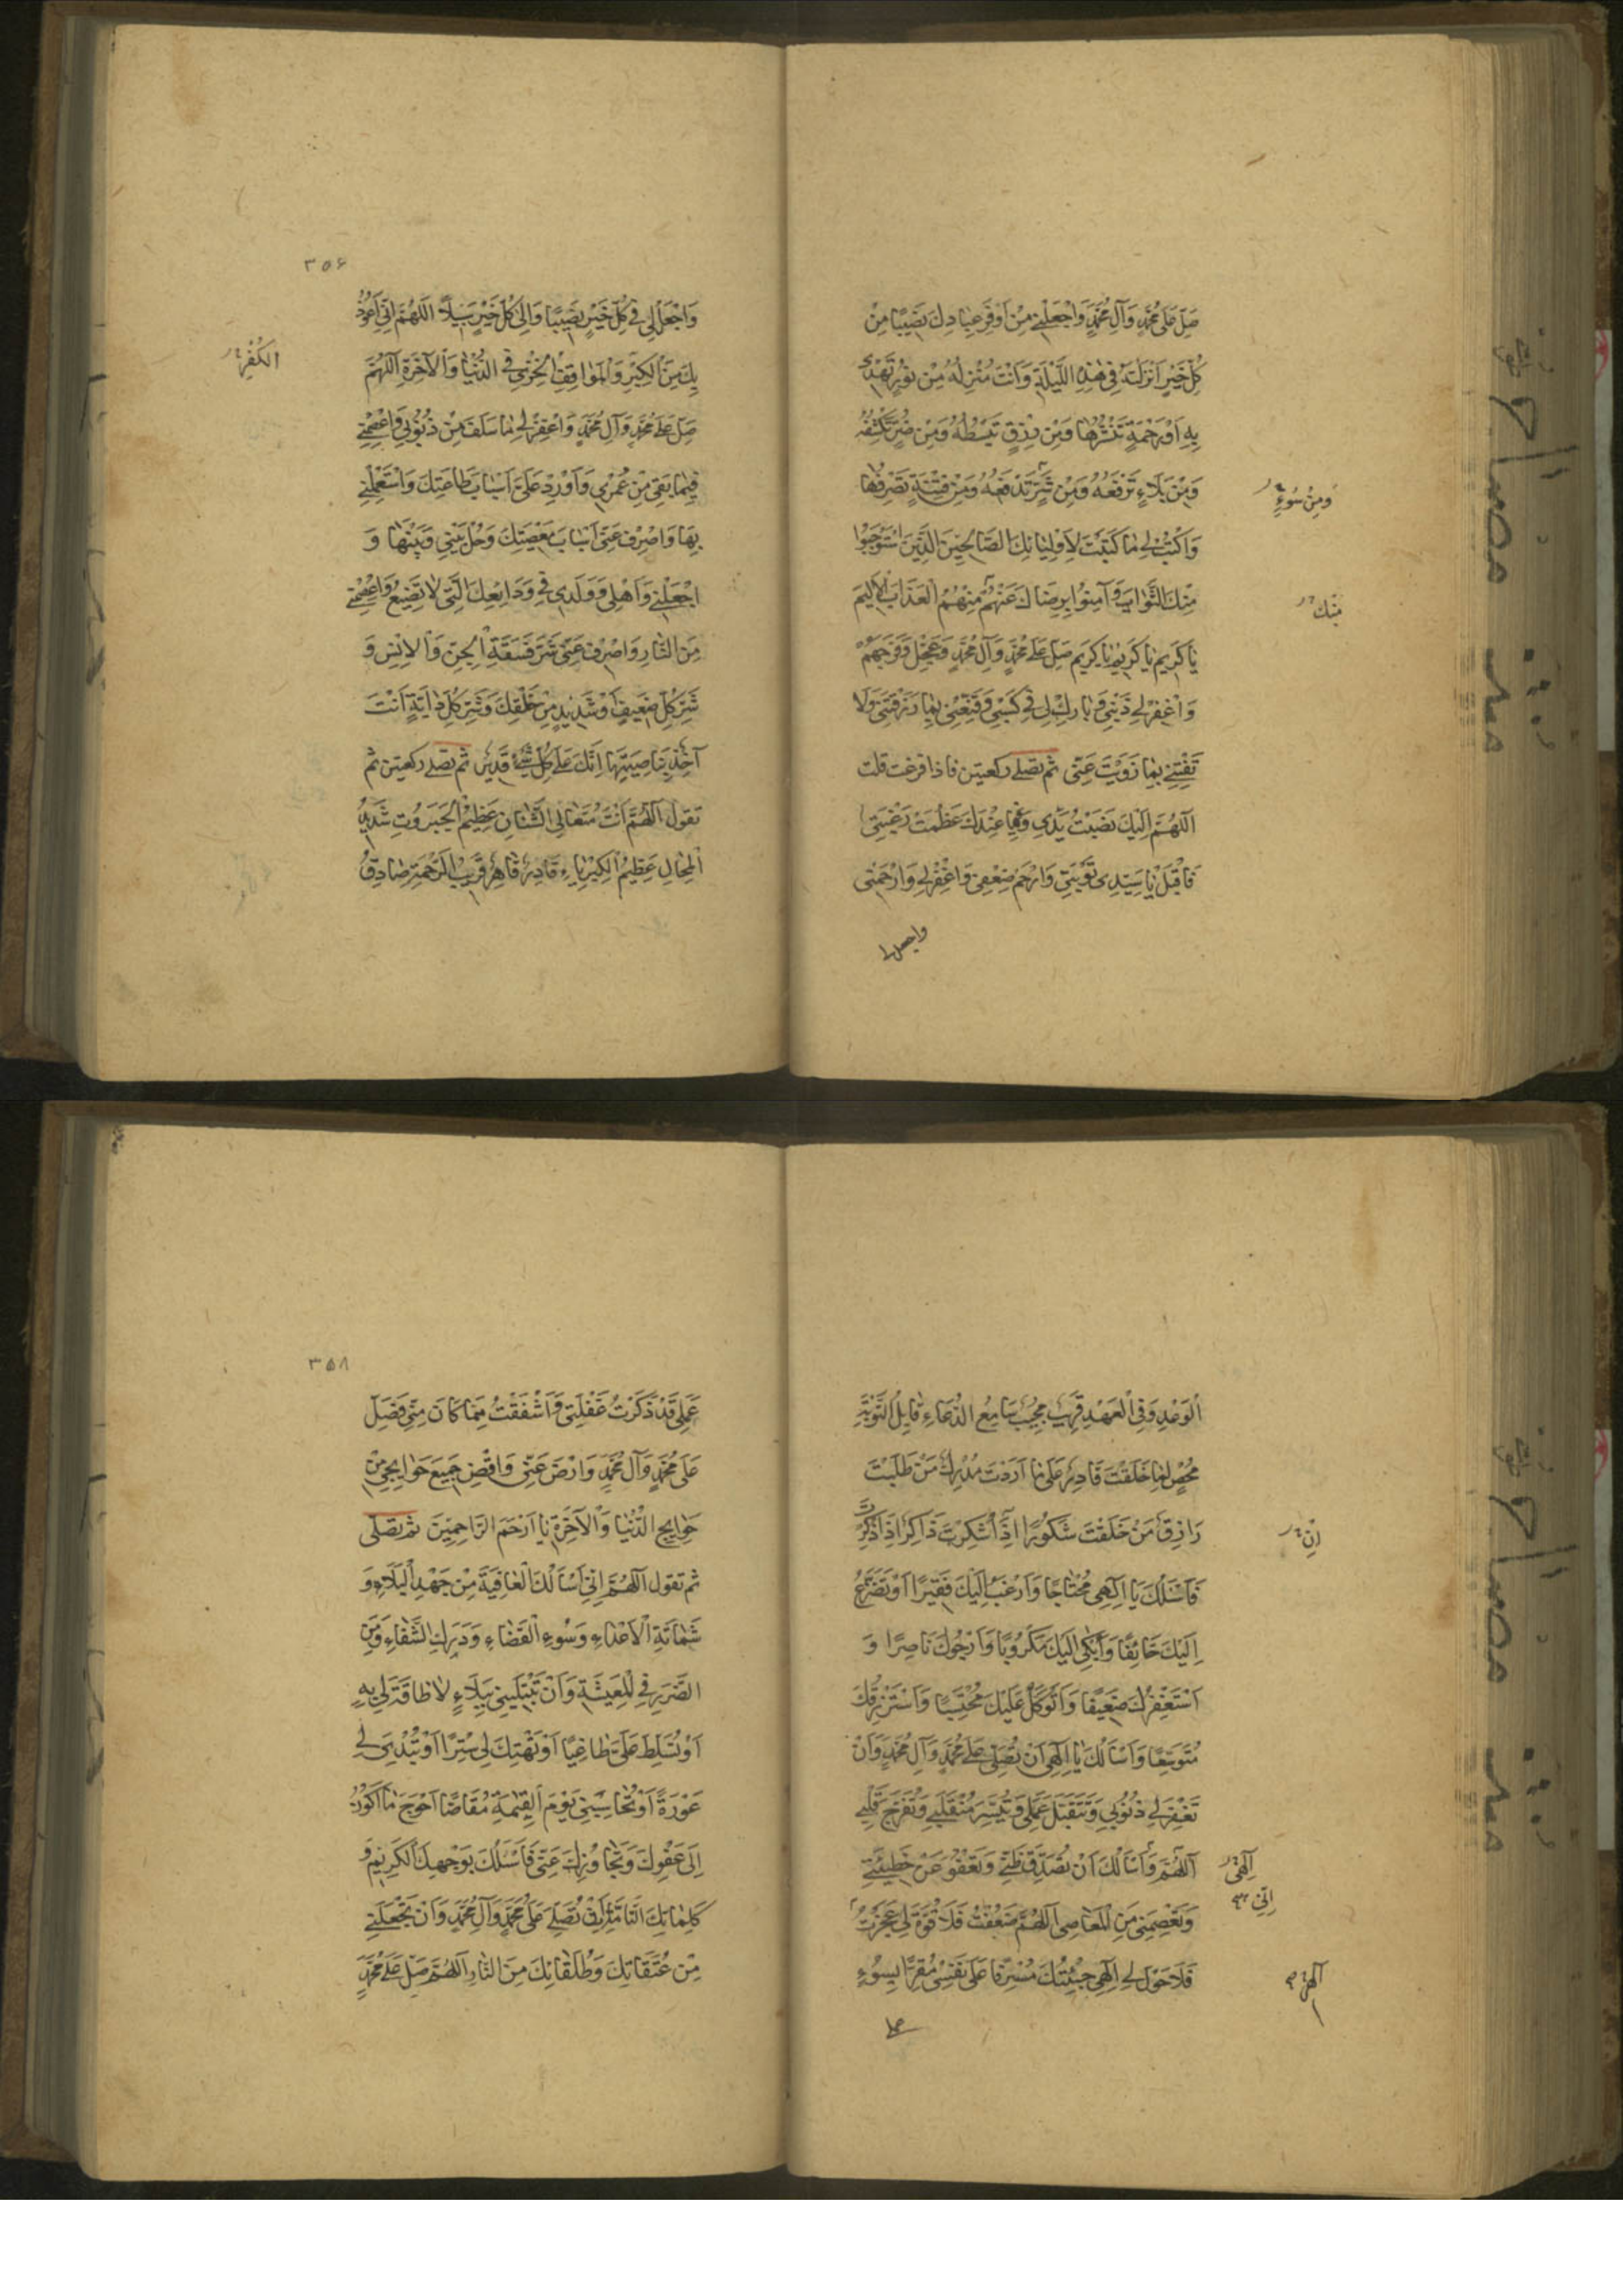 صَلِّ عَلى مُحَمَّدٍ وَآلِ مُحَمَّدٍ وَاجْعَلْنِي مِنْ أَوْفَرِ عِبَادِكَ نَصِيبًا مِنْ
كُلِّ خَيْرٍ أَنْزَلْتَهُ فِي هٰذِهِ اللَّيْلَةِ وَأَنْتَ مُنْزِلُهُ مِنْ نُورٍ تَهْدِي
بِهِ أَوْ رَحْمَةٍ تَنْشُرُهَا وَمِنْ رِزْقٍ تَبْسُطُهُ وَمِنْ ضُرٍّ تَكْشِفُهُ
وَمِنْ بَلَاءٍ تَرْفَعُهُ وَمِنْ شَرٍّ تَدْفَعُهُ وَمِنْ فِتْنَةٍ تَصْرِفُهَا
وَمِنْ سُوءٍ
وَاكْتُبْ لِي مَا كَتَبْتَ لِأَوْلِيَائِكَ الصَّالِحِينَ الَّذِينَ اسْتَوْجَبُوا
مِنْكَ الثَّوَابَ وَآمِنُوا بِرِضَاكَ عَنْهُمْ مِنْهُمُ الْعَذَابَ الْأَلِيمَ
مِنْكَ
يَا كَرِيمُ يَا كَرِيمُ يَا كَرِيمُ صَلِّ عَلى مُحَمَّدٍ وَآلِ مُحَمَّدٍ وَعَجِّلْ فَرَجَهُمْ
وَاغْفِرْ لِي ذَنْبِي وَبَارِكْ لِي فِي كَسْبِي وَقَنِّعْنِي بِمَا رَزَقْتَنِي وَلَا
تَفْتِنِّي بِمَا زَوَيْتَ عَنِّي ثم تصلى ركعتين فاذا فرغت قلت
اللّٰهُمَّ إِلَيْكَ نَصَبْتُ يَدِي وَفِيمَا عِنْدَكَ عَظُمَتْ رَغْبَتِي
فَاقْبَلْ يَا سَيِّدِي تَوْبَتِي وَارْحَمْ ضَعْفِي وَاغْفِرْ لِي وَارْحَمْنِي
واجعل لى
٣٥۶
وَاجْعَلْ لِي فِي كُلِّ خَيْرٍ نَصِيبًا وَإِلَى كُلِّ خَيْرٍ سَبِيلًا اللّٰهُمَّ إِنِّي أَعُوذُ
بِكَ مِنَ الْكِبْرِ وَالْمَوَاقِفِ الْخِزْيِ فِي الدُّنْيَا وَالْآخِرَةِ اللّٰهُمَّ
الكُفْرِ
صَلِّ عَلى مُحَمَّدٍ وَآلِ مُحَمَّدٍ وَاغْفِرْ لِي مَا سَلَفَ مِنْ ذُنُوبِي وَاعْصِمْنِي
فِيمَا بَقِيَ مِنْ عُمْرِي وَأَوْرِدْ عَلَيَّ أَسْبَابَ طَاعَتِكَ وَاسْتَعْمِلْنِي
بِهَا وَاصْرِفْ عَنِّي أَسْبَابَ مَعْصِيَتِكَ وَحُلْ بَيْنِي وَبَيْنَهَا وَ
اجْعَلْنِي وَأَهْلِي وَوَلَدِي فِي وَدَائِعِكَ الَّتِي لَا تَضِيعُ وَاعْصِمْنِي
مِنَ النَّارِ وَاصْرِفْ عَنِّي شَرَّ فَسَقَةِ الْجِنِّ وَالْإِنْسِ وَ
شَرَّ كُلِّ ضَعِيفٍ أَوْ شَدِيدٍ مِنْ خَلْقِكَ وَشَرَّ كُلِّ دَابَّةٍ أَنْتَ
آخِذٌ بِنَاصِيَتِهَا إِنَّكَ عَلى كُلِّ شَيْءٍ قَدِيرٌ ثم تصلى ركعتين ثم
تقول اللّٰهُمَّ أَنْتَ مُتَعَالِي الشَّانِ عَظِيمُ الْجَبَرُوتِ شَدِيدُ
الْمِحَالِ عَظِيمُ الْكِبْرِيَاءِ قَادِرٌ قَاهِرٌ قَرِيبُ الرَّحْمَةِ صَادِقُ
الْوَعْدِ وَفِيُّ الْعَهْدِ قَرِيبٌ مُجِيبٌ سَامِعُ الدُّعَاءِ قَابِلُ التَّوْبَةِ
مُحْصٍ لِمَا خَلَقْتَ قَادِرٌ عَلى مَا أَرَدْتَ مُدْرِكٌ مَنْ طَلَبْتَ
رَازِقٌ مَنْ خَلَقْتَ شَكُورًا إِذَا شُكِرْتَ ذَاكِرًا إِذَا ذُكِرْتَ
إِنْ
فَأَسْئَلُكَ يَا إِلٰهِي مُحْتَاجًا وَأَرْغَبُ إِلَيْكَ فَقِيرًا أَوْ تَضَرَّعُ
إِلَيْكَ خَائِفًا وَأَبْكِي إِلَيْكَ مَكْرُوبًا وَأَرْجُوكَ نَاصِرًا وَ
أَسْتَغْفِرُكَ ضَعِيفًا وَأَتَوَكَّلُ عَلَيْكَ مُحْتَسِبًا وَأَسْتَرْزِقُكَ
مُتَوَسِّعًا وَأَسْأَلُكَ يَا إِلٰهِي أَنْ تُصَلِّيَ عَلى مُحَمَّدٍ وَآلِ مُحَمَّدٍ وَأَنْ
تَغْفِرَ لِي ذُنُوبِي وَتَتَقَبَّلَ عَمَلِي وَتُيَسِّرَ مُنْقَلَبِي وَتُفَرِّجَ قَلْبِي
اللّٰهُمَّ وَأَسْأَلُكَ أَنْ تُصَدِّقَ ظَنِّي وَتَعْفُوَ عَنْ خَطِيئَتِي
إِلٰهِي
إِنِّي
وَتَعْصِمَنِي مِنَ الْمَعَاصِي اللّٰهُمَّ ضَعُفْتُ فَلَا قُوَّةَ لِي عَجَزْتُ
فَلَا حَوْلَ لِي إِلٰهِي جِئْتُكَ مُسْرِفًا عَلى نَفْسِي مُقِرًّا بِسُوءِ
إلٰهى
عملى
٣۵٨
عَمَلِي قَدْ ذَكَرْتُ غَفْلَتِي وَأَشْفَقْتُ مِمَّا كَانَ مِنِّي فَصَلِّ
عَلى مُحَمَّدٍ وَآلِ مُحَمَّدٍ وَارْضَ عَنِّي وَاقْضِ جَمِيعَ حَوَايِجِي مِنْ
حَوَايِجِ الدُّنْيَا وَالْآخِرَةِ يَا أَرْحَمَ الرَّاحِمِينَ ثم تصلى
ثم تقول اللّٰهُمَّ إِنِّي أَسْأَلُكَ الْعَافِيَةَ مِنْ جَهْدِ الْبَلَاءِ وَ
شَمَاتَةِ الْأَعْدَاءِ وَسُوءِ الْقَضَاءِ وَدَرَكِ الشَّقَاءِ وَمِنَ
الضَّرَرِ فِي الْمَعِيشَةِ وَأَنْ تَبْتَلِيَنِي بِبَلَاءٍ لَا طَاقَةَ لِي بِهِ
أَوْ تُسَلِّطَ عَلَيَّ طَاغِيًا أَوْ تَهْتِكَ لِي سِتْرًا أَوْ تُبْدِيَ لِي
عَوْرَةً أَوْ تُحَاسِبَنِي يَوْمَ الْقِيٰمَةِ مُقَاصًّا أَحْوَجَ مَا أَكُونُ
إِلَى عَفْوِكَ وَتَجَاوُزِكَ عَنِّي فَأَسْئَلُكَ بِوَجْهِكَ الْكَرِيمِ وَ
كَلِمَاتِكَ التَّامَّةِ أَنْ تُصَلِّيَ عَلى مُحَمَّدٍ وَآلِ مُحَمَّدٍ وَأَنْ تَجْعَلَنِي
مِنْ عُتَقَائِكَ وَطُلَقَائِكَ مِنَ النَّارِ اللّٰهُمَّ صَلِّ عَلى مُحَمَّدٍ